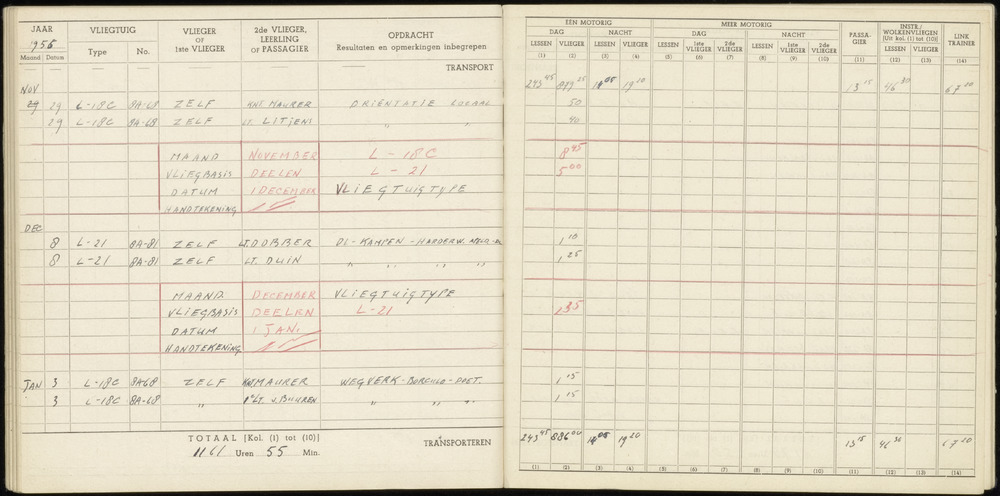 JAAR VLIEGTUIG VLIEGER OF 1ste VLIEGER 2de VLIEGER, LEERLING OF PASSAGIER OPDRACHT
1956 Resultaten en opmerkingen inbegrepen
Maand Datum Type No.
TRANSPORT
NOV
29 29 L-18C 8A-68 ZELF KNT MAURER ORIENTATIE LOCAAL
29 L-18C 8A-68 ZELF LT. LITJENS " "
MAAND NOVEMBER L - 18C
VLIEGBASIS DEELEN L - 21
DATUM 1 DECEMBER VLIEGTUIGTYPE
HANDTEKENING
DEC
8 L-21 8A-81 ZELF LT. DOBBER DL-KAMPEN-HARDERW.
8 L-21 8A-81 ZELF LT. DUIN " " " "
MAAND DECEMBER VLIEGTUIGTYPE
VLIEGBASIS DEELEN L-21
DATUM 1 JAN.
HANDTEKENING
JAN 3 L-18C 8A-68 ZELF KNT MAURER WEGVERK-BORCULO-DOET.
3 L-18C 8A-68 " 1e LT. v. BUUREN " " "
TOTAAL [Kol. (1) tot (10)] TRANSPORTEREN
1161 Uren 55 Min.
EEN MOTORIG MEER MOTORIG PASSA-GIER INSTR./WOLKENVLIEGEN [Uit kol. (1) tot (10)] LINK TRAINER
DAG NACHT DAG NACHT
LESSEN VLIEGER LESSEN VLIEGER LESSEN 1ste VLIEGER 2de VLIEGER LESSEN 1ste VLIEGER 2de VLIEGER LESSEN VLIEGER
(1) (2) (3) (4) (5) (6) (7) (8) (9) (10) (11) (12) (13) (14)
243 45 879 25 14 05 19 20 13 15 46 30 67 20
50
40
8 45
5 00
1 10
1 25
1 15
1 15
243 45 886 00 14 05 19 20 13 15 46 30 67 20
(1) (2) (3) (4) (5) (6) (7) (8) (9) (10) (11) (12) (13) (14)